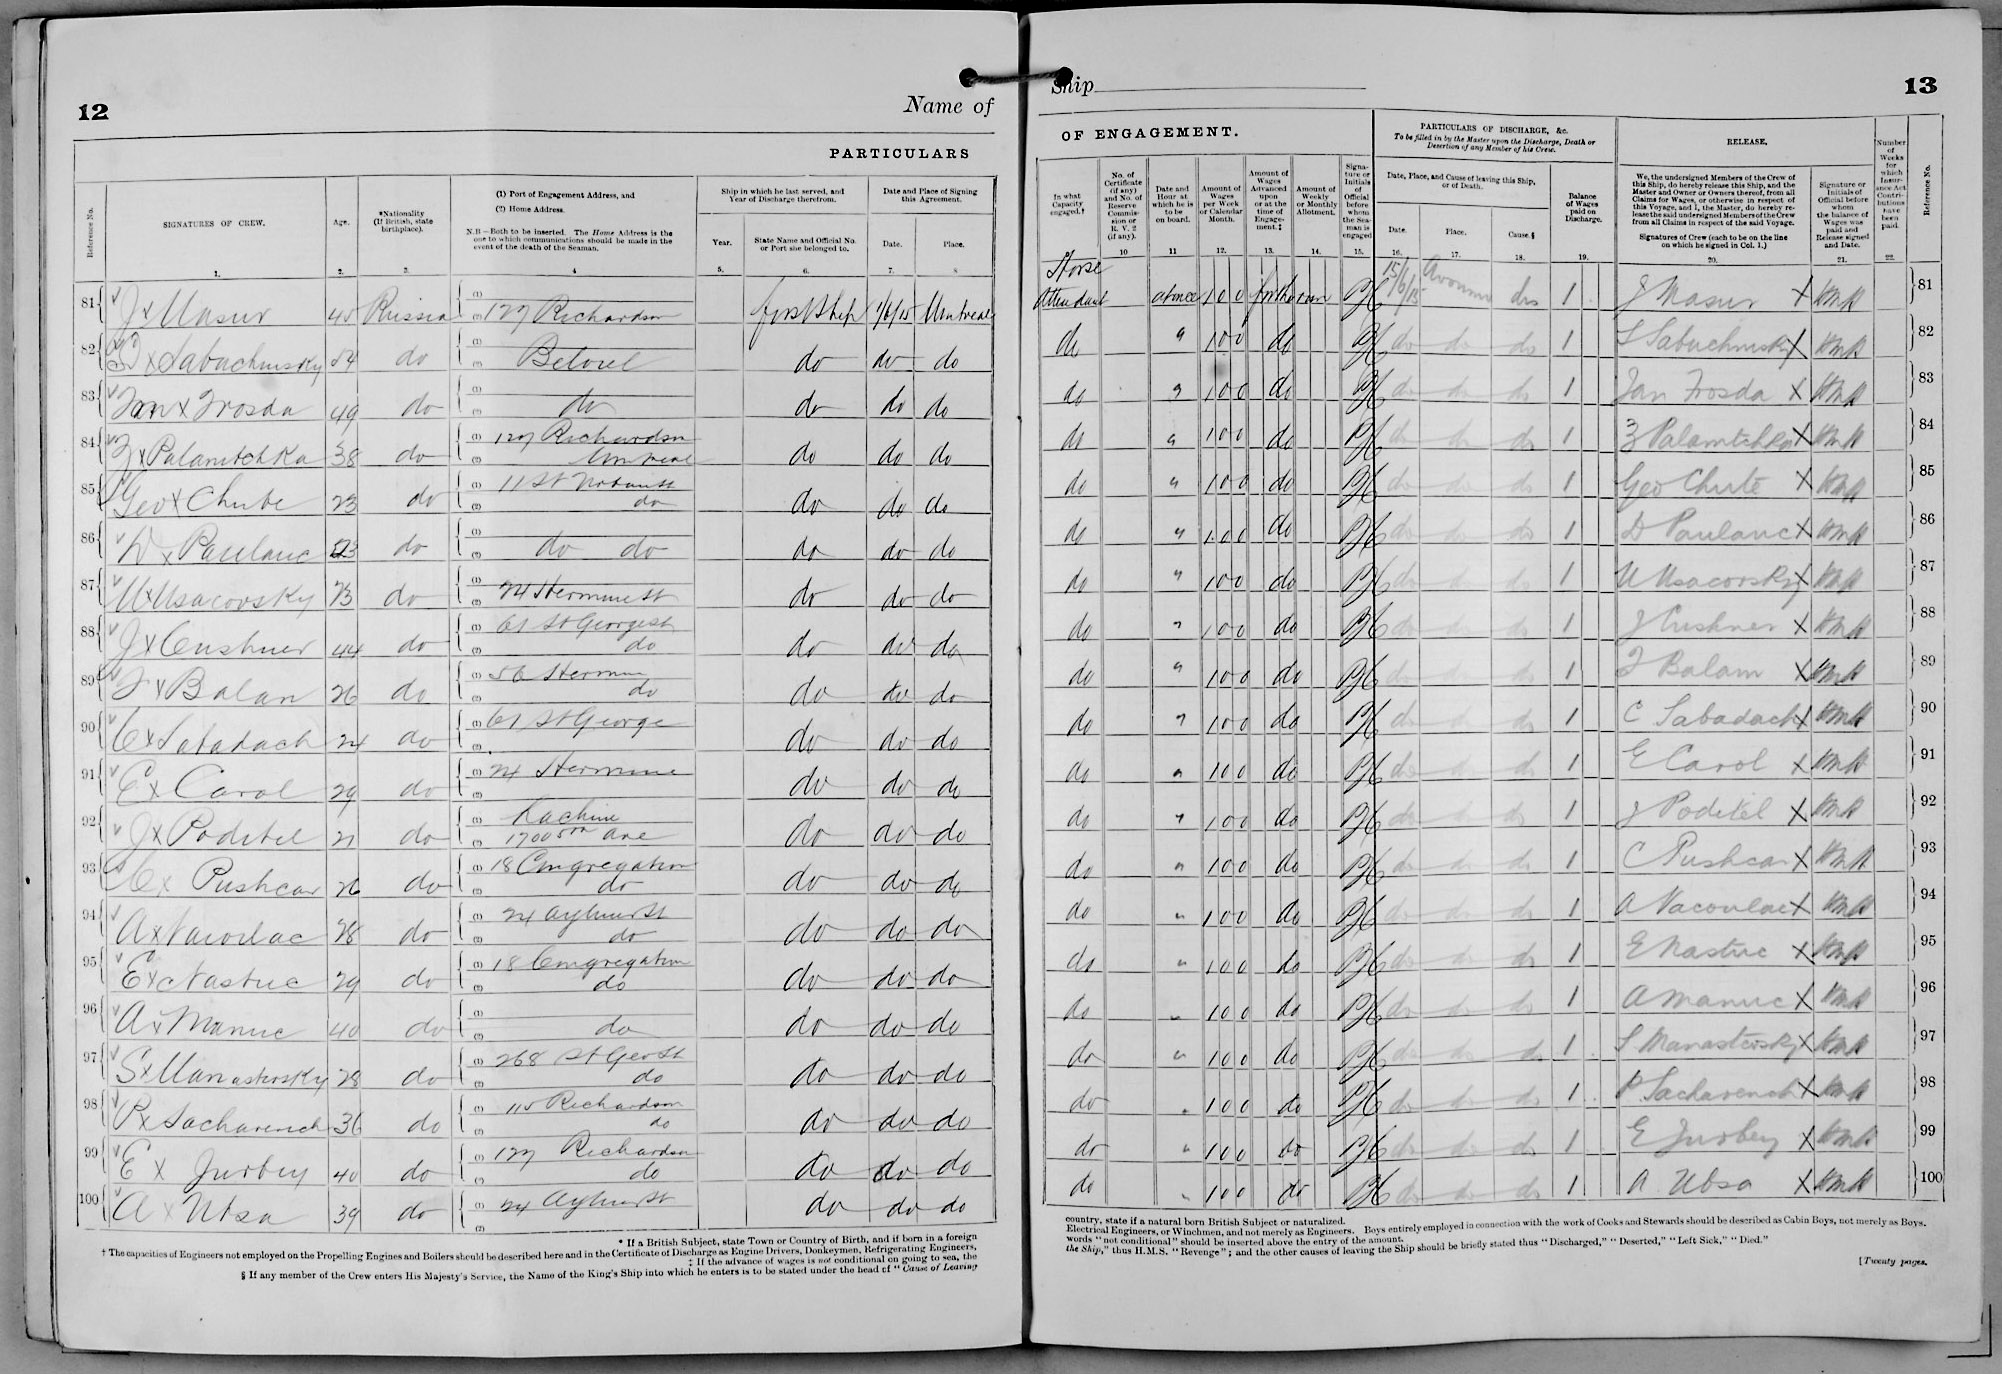 12
Name of
PARTICULARS
Reference No.
SIGNATURES OF CREW.
Age.
*Nationality (If British, state birthplace).
(1) Port of Engagement Address, and
(2) Home Address.
N.B.—Both to be inserted. The Home Address is the one to which communications should be made in the event of the death of the Seaman.
Ship in which he last served, and Year of Discharge therefrom.
Year.
State Name and Official No. or Port she belonged to.
Date and Place of Signing this Agreement.
Date.
Place.
1. 2. 3. 4 5. 6. 7. 8
81 J x Masur 45 Russia (1) (2) 127 Richardson first ship 1/6/15 Montreal
82 S x Sabuchinsky 54 do (1) (2) Beloeil do do do
83 Jan x Frosda 49 do (1) (2) do do do do
84 Z x Palamtchka 38 do (1) 127 Richardson (2) Montreal do do do
85 Geo x Chute 23 do (1) 11 St (2) do do do do
86 D x Paulanc 23 do (1) (2) do do do do do
87 U x Usacovsky 23 do (1) (2) 24 Hermine St do do do
88 J x Cushner 44 do (1) 61 St George St (2) do do do do
89 F x Balan 26 do (1) 56 Hermine (2) do do do do
90 C x Sabadach 24 do (1) 61 St George (2) do do do
91 E x Carol 29 do (1) 24 Hermine (2) do do do
92 J x Poditel 21 do (1) Lachine (2) 1700 Ave do do do
93 C x Pushcar 26 do (1) 18 Congregation (2) do do do do
94 A x Vacoulac 28 do (1) 24 (2) do do do do
95 E x Nastuc 29 do (1) 18 Congregation (2) do do do do
96 A x Manuc 40 do (1) (2) do do do do
97 S x Manastersky 28 do (1) 268 St Geo St (2) do do do do
98 P x Sacharench 36 do (1) 115 Richardson (2) do do do do
99 E x Jurbey 40 do (1) 127 Richardson (2) do do do do
100 A x Ubsa 39 do (1) 24 (2) do do do
* If a British Subject, state Town or Country of Birth, and if born in a foreign
† The capacities of Engineers not employed on the Propelling Engines and Boilers should be described here and in the Certificate of Discharge as Engine Drivers, Donkeymen, Refrigerating Engineers,
‡ If the advance of wages is not conditional on going to sea, the
§ If any member of the Crew enters His Majesty's Service, the Name of the King's Ship into which he enters is to be stated under the head of "Cause of Leaving
Ship
13
OF ENGAGEMENT.
PARTICULARS OF DISCHARGE, &c.
To be filled in by the Master upon the Discharge, Death or Desertion of any Member of his Crew.
RELEASE,
In what Capacity engaged.†
No. of Certificate (if any) and No. of Reserve Commission or R. V. 2 (if any).
Date and Hour at which he is to be on board.
Amount of Wages per Week or Calendar Month.
Amount of Wages Advanced upon or at the time of Engagement.‡
Amount of Weekly or Monthly Allotment.
Signature or Initials of Official before whom the Seaman is engaged
Date, Place, and Cause of leaving this Ship, or of Death.
Date.
Place.
Cause.§
Balance of Wages paid on Discharge.
We, the undersigned Members of the Crew of this Ship, do hereby release this Ship, and the Master and Owner or Owners thereof, from all Claims for Wages, or otherwise in respect of this Voyage, and I, the Master, do hereby release the said undersigned Members of the Crew from all Claims in respect of the said Voyage.
Signatures of Crew (each to be on the line on which he signed in Col. 1.)
Signature or Initials of Official before whom the balance of Wages was paid and Release signed and Date.
Number of Weeks for which Insurance Act Contributions have been paid.
Reference No.
10 11 12. 13. 14. 15. 16. 17. 18. 19. 20. 21. 22.
Horse
Attendant at once 1 0 0 for the run 15/6/15 Avonmo dis 1 J Masur X 81
do " 1 0 0 do do do do 1 S Sabuchinsky X 82
do " 1 0 0 do do do do 1 Jan Frosda X 83
do " 1 0 0 do do do do 1 Z Palamtchka X 84
do " 1 0 0 do do do do 1 Geo Chute X 85
do " 1 0 0 do do do do 1 D Paulanc X 86
do " 1 0 0 do do do do 1 U Usacovsky X 87
do " 1 0 0 do do do do 1 J Cushner X 88
do " 1 0 0 do do do do 1 F Balam X 89
do " 1 0 0 do do do do 1 C Sabadach X 90
do " 1 0 0 do do do do 1 E Carol X 91
do " 1 0 0 do do do do 1 J Poditel X 92
do " 1 0 0 do do do do 1 C Pushcar X 93
do " 1 0 0 do do do do 1 A Vacoulac X 94
do " 1 0 0 do do do do 1 E Nastuc X 95
do " 1 0 0 do do do do 1 A Manuc X 96
do " 1 0 0 do do do do 1 S Manastersky X 97
do " 1 0 0 do do do do 1 P Sacharench X 98
do " 1 0 0 do do do do 1 E Jurbey X 99
do " 1 0 0 do do do do 1 A Ubsa X 100
country, state if a natural born British Subject or naturalized.
Electrical Engineers, or Winchmen, and not merely as Engineers. Boys entirely employed in connection with the work of Cooks and Stewards should be described as Cabin Boys, not merely as Boys.
words "not conditional" should be inserted above the entry of the amount.
the Ship," thus H.M.S. "Revenge"; and the other causes of leaving the Ship should be briefly stated thus "Discharged," "Deserted," "Left Sick," "Died."
[Twenty pages.